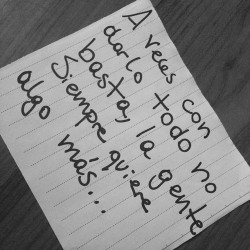 A veces con
darlo todo no
basta, la gente
Siempre quiere
algo más...